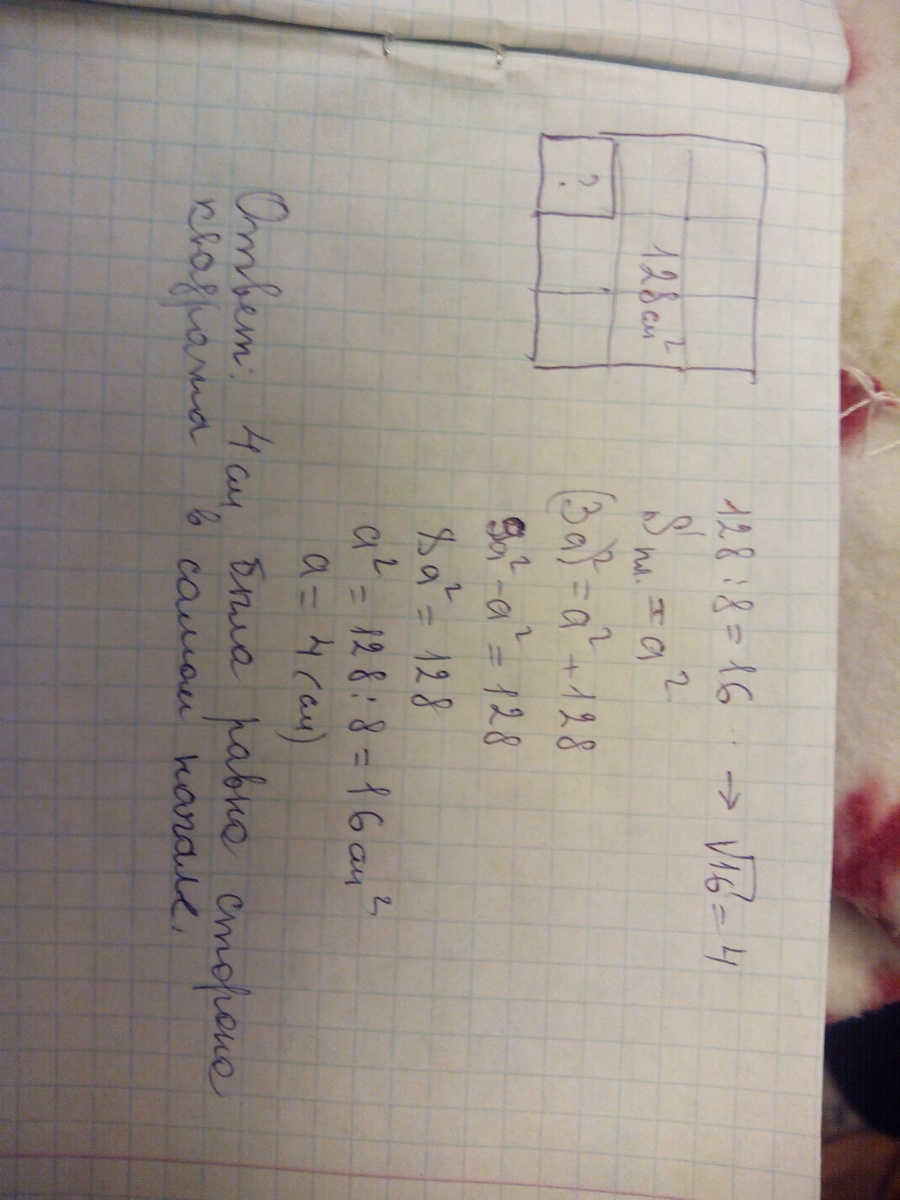 128 см²
?
128 : 8 = 16 → √16 = 4
S пл. = a²
(3a)² = a² + 128
9a² - a² = 128
8a² = 128
a² = 128 : 8 = 16 см²
a = 4 (см)
Ответ: 4 см, была равна сторона
квадрата в самом начале.